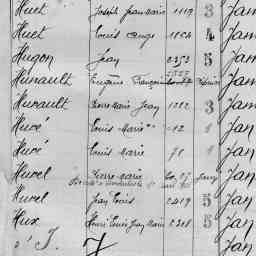 Huet Joseph Jean Marie 1119 3 Jan
Huet Louis Ange 1154 4 Jan
Hugon Jean 2353 5 Jan
Hunault Eugène François Jan
Hurault Pierre Marie Jean 1222 3 Jan
Huvé Louis Marie 12 1 Jan
Huvé Louis Marie 71 1 Jan
Huvel Pierre Marie Jan
Huvel Jean Louis 2419 5 Jan
Hux Henri Louis Jean Marie 2308 5 Jan
Jan